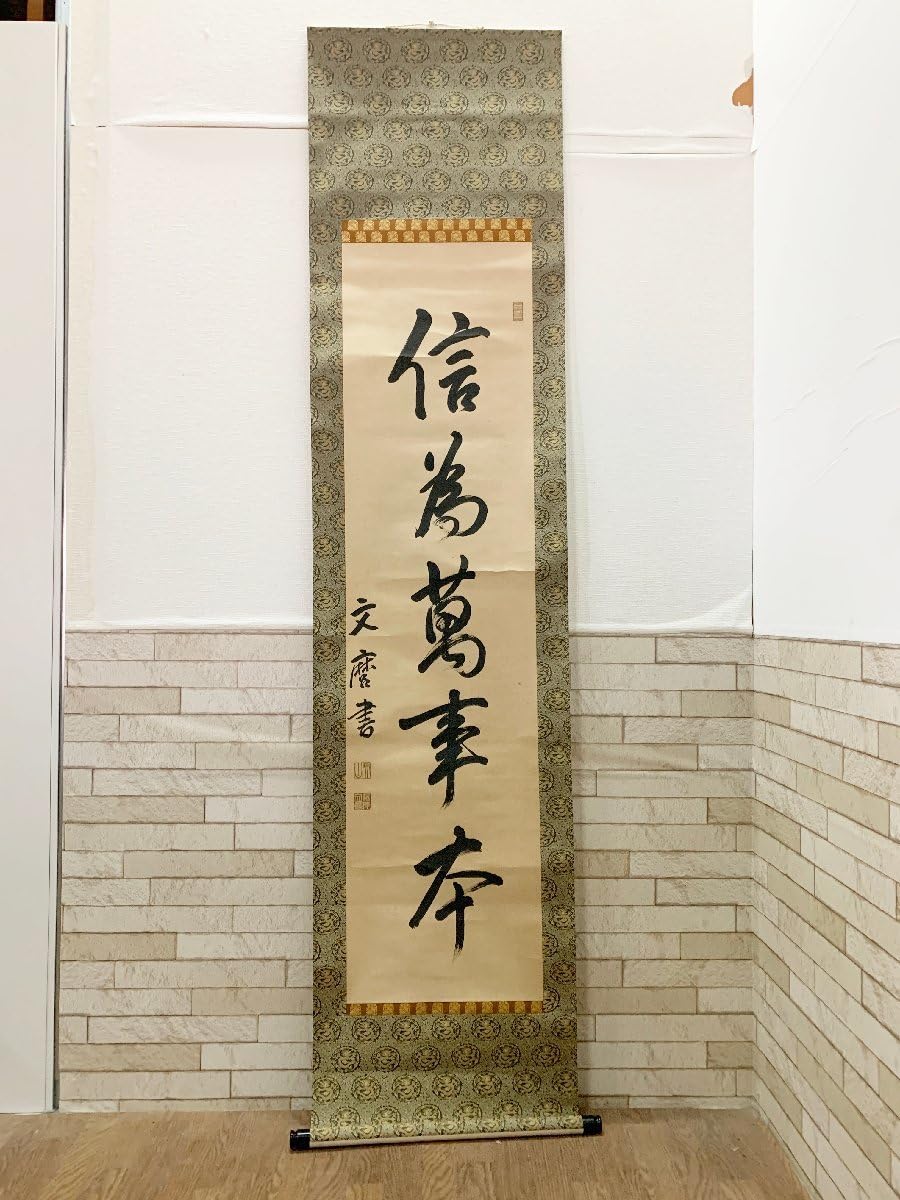 信為萬事本
文麿書